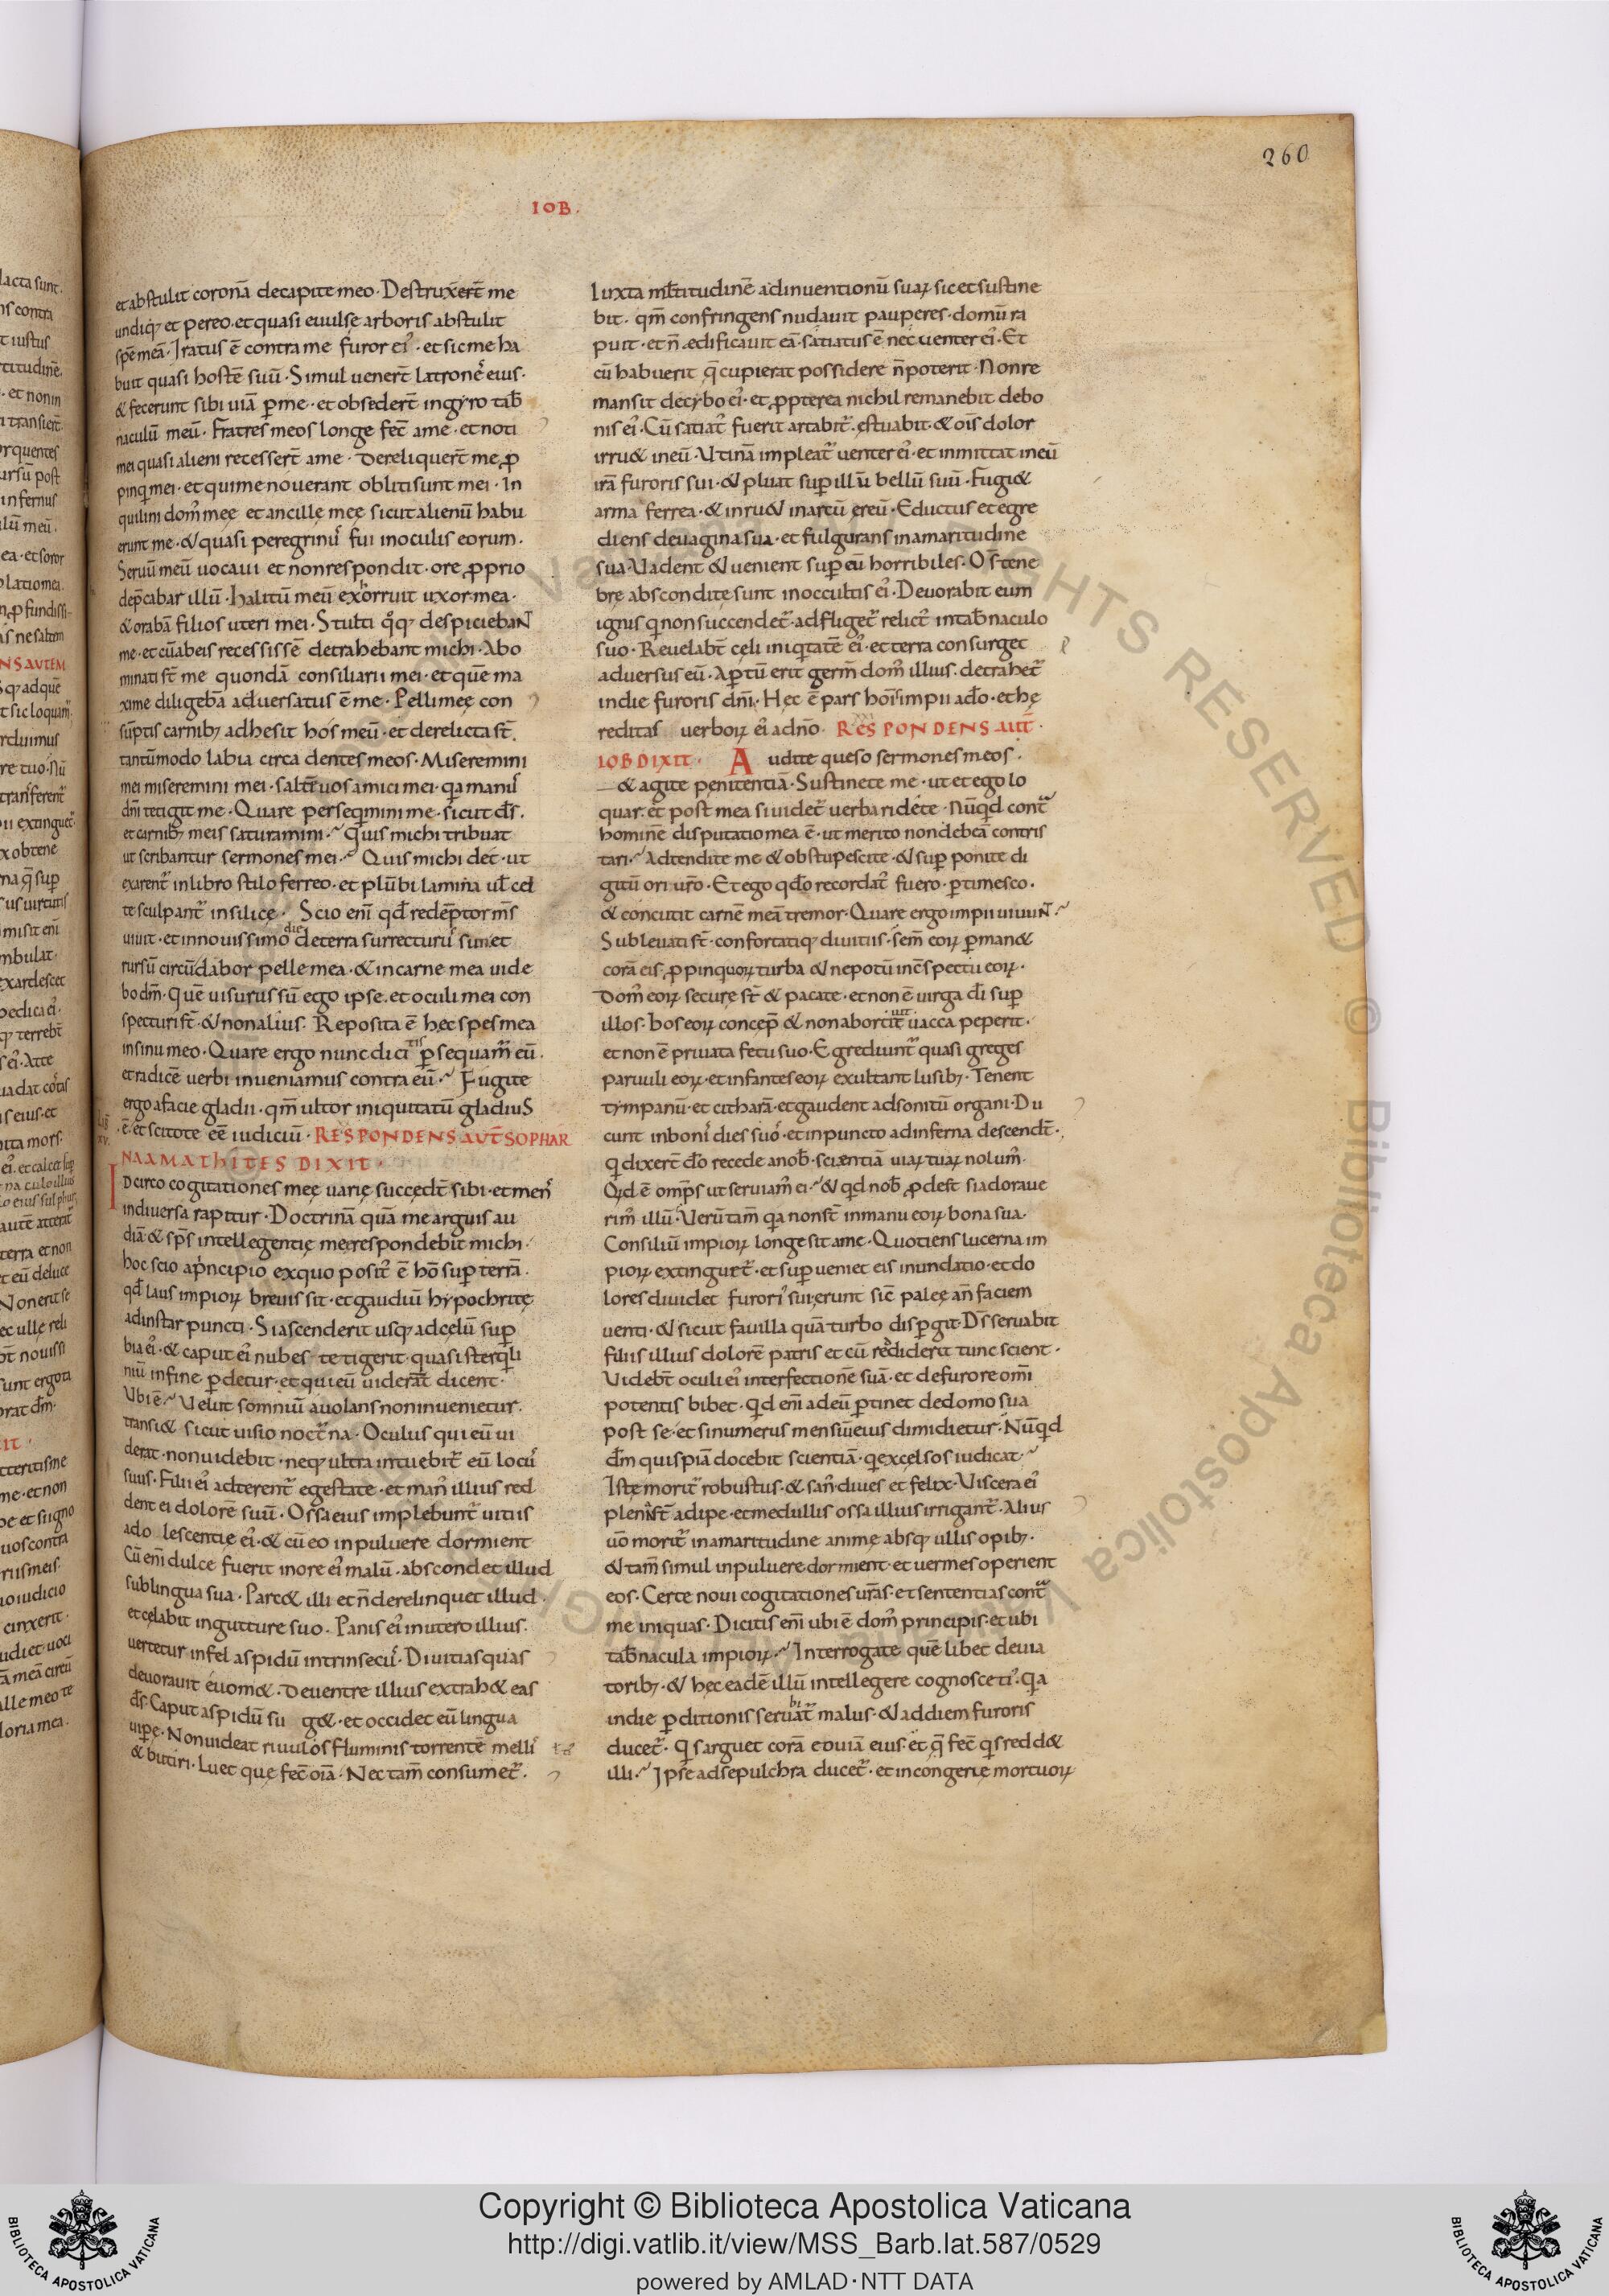 260
IOB.
et abstulit coronā decapite meo · Destrux̄er̄t me
undiq; et pereo · et quasi euulsę arboris abstulit
spē meā · Iratus ē contra me furor ei᾽ · et sic me ha
buit quasi hostē suū · Simul uener̄t latrone᾽ eius ·
& fecerunt sibi uiā p̄ me · et obseder̄t in gyro tab̄
naculū meū · Fratres meos longe fec̄ ame · et noti
mei quasi alieni recesser̄t ame · Dereliquer̄t me ꝓ
pinq̇ mei · et qui me nouerant obliti sunt mei · In
quilini dom᾽ męę et ancillę męę sicut alienū habu
erunt me · & quasi peregrinu᾽ fui inoculis eorum ·
Seruū meū uocaui et nonrespondit · ore ꝓprio
dep̄cabar illū · halitū meū exhorruit uxor mea ·
& orabā filios uteri mei · Stulti q̊q; despiciebaɴt
me · et cū abeis recessissē detrahebant michi · Abo
minati st̄ me quondā consiliarii mei · et quē ma
xime diligebā aduersatus ē me · Pelli męę con
sūptis carnib; adhesit hos meū · et derelicta st̄
tantūmodo labia circa dentes meos · Miseremini
mei miseremini mei · salte᷑ uos amici mei · q̇a manu᾽
dn̄i tetigit me · Quare perseq̇mini me · sicut d̄s ·
et carnib; meis saturamini · Quis michi tribuat
ut scribantur sermones mei · Quis michi det · ut
exarent᷑ in libro stilo ferreo · et plūbi lamina ul̄ cel
te sculpant᷑ in silicę · Scio eni᾽ qd̄ redēptor m̄s
uiuit · et innouissimo die deterra surrecturu᾽ sum et
rursū circūdabor pelle mea · & in carne mea uide
bo dm̄ · Quē uisurus sū ego ipse · et oculi mei con
specturi st̄ · & non alius · Reposita ē hec spes mea
in sinu meo · Quare ergo nunc dicitis p̄sequam᷑ eū ·
et radicē uerbi inueniamus contra eū · Fugite
ergo a facie gladii · qm̄ ultor iniquitatū gladiuS
ē · et scitote eē iudiciū · RESPONDENS AUT̄ SOPHAR
NAAMATHITES DIXIT ·
Idcirco cogitationes męę uarię succedt̄ sibi · et men᾽
indiuersa rapitur · Doctrinā quā me arguis au
diā · & sp̄s intellegentię męę respondebit michi ·
hoc scio ap̄ncipio exquo posit᾽ ē hō sup̄ terrā ·
qd̄ laus impioꝝ breuis sit · et gaudiū hypochritę
ad instar puncti · Si ascenderit usq; adcęlū sup̄
bia ei᾽ · & caput ei᾽ nubes tetigerit quasi sterq̇li
niū infine p̄detur · et qui eū uiderat̄ dicent ·
Ubi ē · Uelut somniū auolans non inuenietur ·
transi& sicut uisio noct᷑na · Oculus qui eū ui
derat · non uidebit · neq; ultra intuebit᷑ eū locu᾽
suus · Filii ei᾽ adterent᷑ egestate · et man᾽ illius red
dent ei dolorē suū · Ossa eius implebunt᷑ uitiis
ado lescentię ei᾽ · & cū eo inpuluere dormient
Cū eni᾽ dulce fuerit inore ei᾽ malū · abscondet illud
sub lingua sua · Parc& illi et n̄ derelinquet illud ·
et cęlabit in gutture suo · Panis ei᾽ in utero illius ·
uertetur infel aspidū intrinsecu᾽ · Diuitias quas
deuorauit euom& · Deuentre illius extrah& eas
d̄s · Caput aspidū su g& · et occidet eū lingua
uip̄ę · Non uideat riuulos fluminis torrentē melli᾽
& butiri · Luet quę fec̄ oīa · Nec tam̄ consumet᷑ ·
Iuxta ml̄titudinē adinuentionū suaꝝ sic et sustine
bit · qm̄ confringens nudauit pauperes · domū ra
puit · et n̄ ædificauit eā · satiatus ē nec uenter ei᾽ · Et
cū habuerit q̄ cupierat possidere n̄ poterit · Non re
mansit decybo ei᾽ · et ꝓpterea nichil remanebit debo
nis ei᾽ · Cū satiat᾽ fuerit artabit᷑ · ęstuabit · & ois̄ dolor
irru& ineū · Utinā impleat᷑ uenter ei᾽ · et inmittat ineū
irā furoris sui · & pluat sup̄ illū bellū suū · Fugi&
arma ferrea · & inru& inarcū ęreū · Eductus et egre
diens deuagina sua · et fulgurans in amaritudine
sua · Uadent & uenient sup̄ eū horribiles · Os̄tene
brę absconditę sunt in occultis ei᾽ · Deuorabit eum
ignis q̇ non succendet᷑ · adfliget᷑ relict᾽ in tab̄naculo
suo · Reuelabt̄ cęli iniq̇tatē ei᾽ · et terra consurget
aduersus eū · Ap̄tū erit germ̄ dom᾽ illius · detrahet᷑
in die furoris dn̄i · Hęc ē pars ho᷑is impii ad̄o · et hę
reditas uerboꝝ ei᾽ adn̄o · RESPONDENS AUT̄ ·
IOB DIXIT · Audite queso sermones meos ·
& agite penitentiā · Sustinete me · ut et ego lo
quar · et post mea si uidet᷑ uerba ridete · Nūq̇d cont᷑
hominē disputatio mea ē · ut merito non debeā contris
tari · Adtendite me & obstupescite · & sup̄ ponite di
gitū ori ur̄o · Et ego qd̄o recordat᾽ fuero · p̄timesco ·
& concutit carnē meā tremor · Quare ergo impii uiuuɴt ·
Subleuati st̄ · confortatiq; diuitiis · sem̄ eoꝝ p̄man&
corā eis · ꝓpinquoꝝ turba & nepotū in c̄spectu eoꝝ ·
Dom᾽ eoꝝ securę st̄ & pacatę · et non ē uirga d̄i sup̄
illos · bos eoꝝ concep̄ & non abortit uit uacca peperit ·
et non ē priuata fetu suo · Egrediunt᷑ quasi greges
paruuli eoꝝ · et infantes eoꝝ exultant lusib; · Tenent
tympanū · et citharā · et gaudent adsonitū organi · Du
cunt in boni᾽ dies suo᾽ · et in puncto ad inferna descendt̄ ·
q̇ dixer̄t d̄o recede anob̄ · scientiā uiaꝝ tuaꝝ nolum᾽ ·
Q̇d ē omp̄s ut seruiam᾽ ei · & q̇d nob̄ ꝓdest si adoraue
rim᾽ illū · Uerū tam̄ q̇a non st̄ inmanu eoꝝ bona sua ·
Consiliū impioꝝ longe sit ame · Quotiens lucerna im
pioꝝ extinguet᷑ · et sup̄ueniet eis inundatio · et do
lores diuidet furori᾽ sui · erunt sic̄ paleę an̄ faciem
uenti · & sicut fauilla quā turbo disp̄git · D̄s seruabit
filiis illius dolorē patris et cū reddiderit tunc sciet ·
Uidebt̄ oculi ei᾽ interfectionē suā · et defurore om̄i
potentis bibet · Q̇d eni᾽ adeū p̄tinet dedomo sua
post se · et si numerus mensiū eius dimidietur · Nūq̇d
d̄m quispiā docebit scientiā · q̇ excelsos iudicat
Iste morit᷑ robustus · & san᾽ · diues et felix · Uiscera ei᾽
plena st̄ adipe · et medullis ossa illius irrigant᷑ · Alius
uō morit᷑ in amaritudine animę absq; ullis opib; ·
& tam̄ simul inpuluere dormient · et uermes operient
eos · Certe noui cogitationes ur̄as · et sententias cont᷑
me iniquas · Dicitis eni᾽ ubi ē dom᾽ principis · et ubi
tab̄nacula impioꝝ · Interrogate quē libet deuia
torib; · & hęc eadē illū intellegere cognosceti᾽ · Q̇a
indie p̄ditionis seruabit᷑ malus · & addiem furoris
ducet᷑ · Q̇s arguet corā eo uiā eius · et q̄ fec̄ q̇s redd&
illi · Ipse adsepulchra ducet᷑ · et in congerię mortuoꝝ
Copyright © Biblioteca Apostolica Vaticana
http://digi.vatlib.it/view/MSS_Barb.lat.587/0529
powered by AMLAD·NTT DATA
BIBLIOTECA APOSTOLICA VATICANA
BIBLIOTECA APOSTOLICA VATICANA